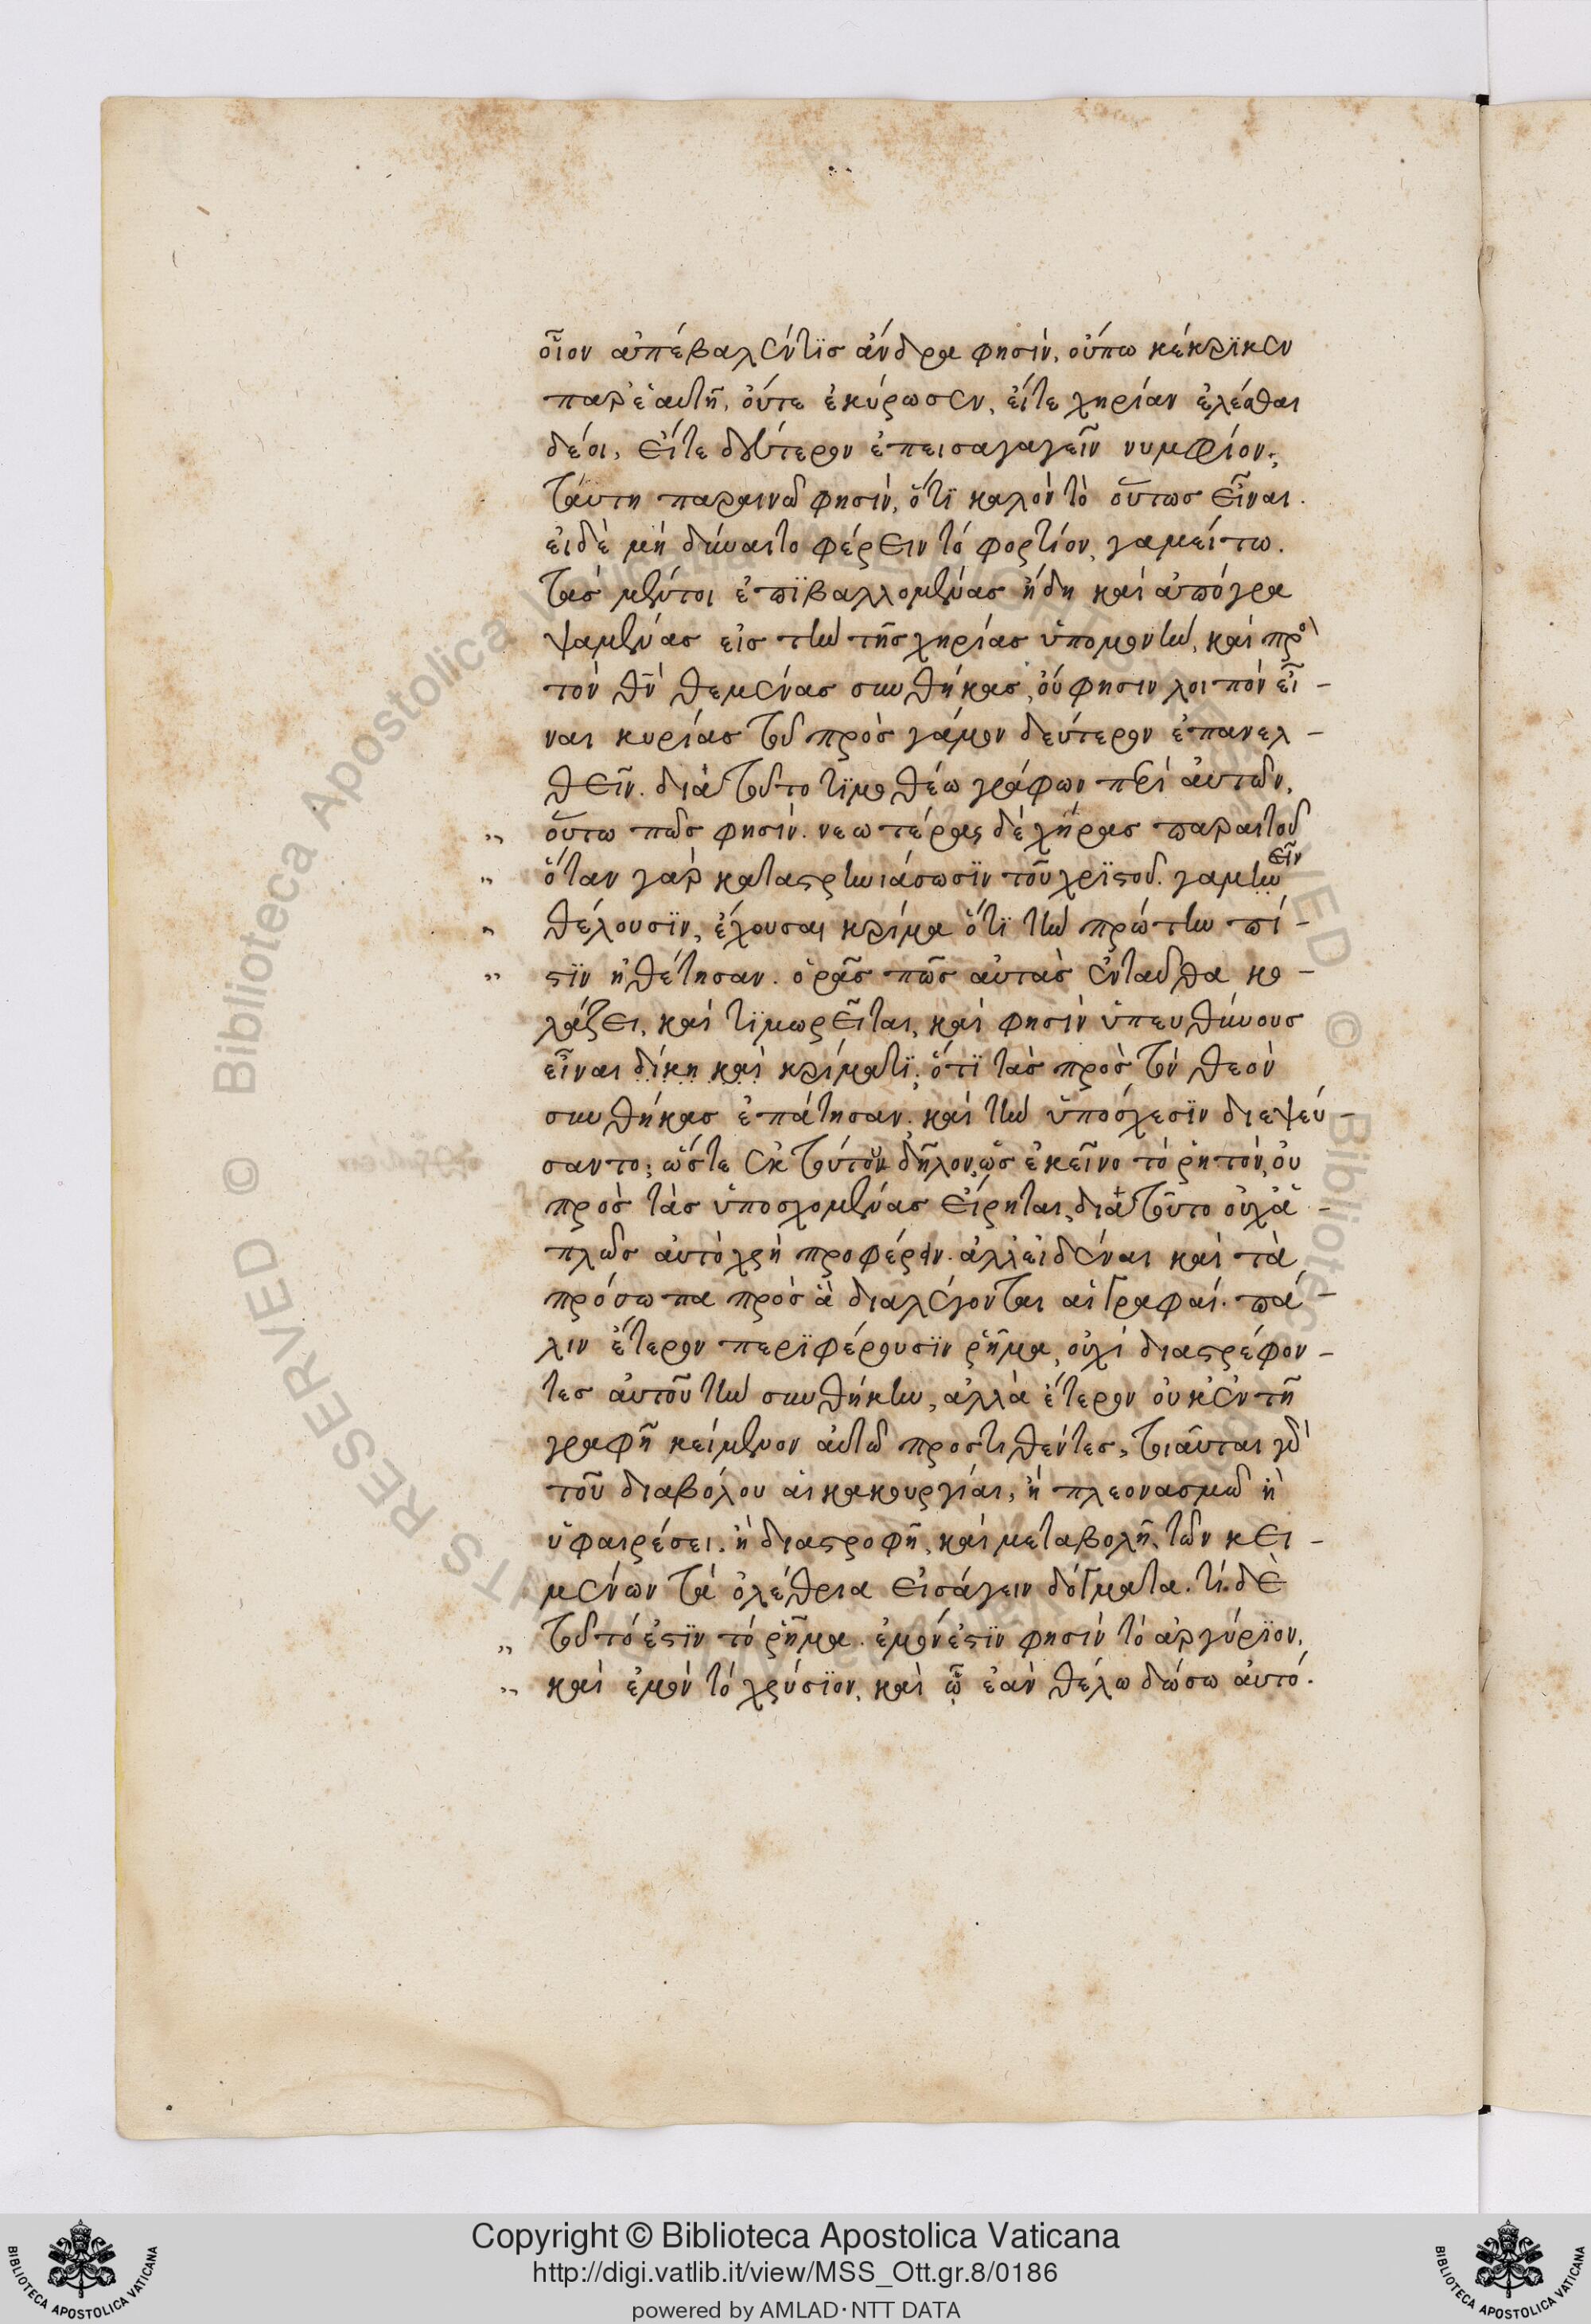 οἷον ἀπέβαλέν τϊσ ἄνδρα φησὶν, οὔπω κέκρϊκεν
παρ' ἑαυτῆ, οὔτε ἐκύρωσεν, εἴτε χηρίαν ἑλέσθαι
δέοι, εἴτε δεύτερον ἐπεισαγαγεῖν νυμφίον;
ταύτη παραινῶ φησὶν, ὅτϊ καλὸν τὸ οὕτωσ εἶναι.
εἰ δὲ μὴ δύναιτο φέρειν τὸ φορτίον, γαμείτω.
τὰσ μέντοι ἐπϊβαλλομένασ ἤδη καὶ ἀπόγρα
ψαμένασ εἰσ τὴν τῆσ χηρίασ ὑπομονὴν, καὶ πρὸ
τὸν θν̄ θεμένασ συνθήκασ, οὔ φησιν λοιπὸν εἶ-
ναι κυρίασ τοῦ πρὸσ γάμον δεύτερον ἐπανελ-
θεῖν. διὰ τοῦτο τϊμοθέω γράφων περὶ αὐτῶν,
" οὕτω πῶσ φησὶν. νεωτέρας δὲ χήρασ παραιτοῦ
" ὅταν γὰρ καταςρηνιάσωσϊν τοῦ χρϊςοῦ. γαμεῖν
" θέλουσϊν, ἔχουσαι κρίμα ὅτϊ τὴν πρώτην πί-
" ςϊν ἠθέτησαν. ὁρᾶσ πῶσ αὐτὰσ ἐνταῦθα κο-
λάζει, καὶ τϊμωρεῖται, καὶ φησὶν ὑπευθύνουσ
εἶναι δίκη καὶ κρίματϊ; ὅτϊ τὰσ πρὸσ τὸν θεὸν
συνθήκασ ἐπάτησαν. καὶ τὴν ὑπόσχεσϊν διεψεύ-
σαντο; ὥστε ἐκ τούτου δῆλον, ὡσ ἐκεῖνο τὸ ῥητὸν, οὐ
πρὸσ τὰσ ὑποσχομένασ εἴρηται, διὰ τοῦτο οὐχ ἁ-
πλῶσ αὐτὸ χρὴ προφέρειν. ἀλλ' εἰδέναι καὶ τὰ
πρόσωπα πρὸσ ἃ διαλέγονται αἱ γραφαί. πά-
λιν ἕτερον περϊφέρουσϊν ῥῆμα, οὐχὶ διαςρέφον-
τεσ αὐτοῦ τὴν συνθήκην, ἀλλὰ ἕτερον οὐκ ἐν τῆ
γραφῆ κείμενον αὐτῶ προστιθέντεσ, τοιαῦται γὰρ
τοῦ διαβόλου αἱ κακουργίαι, ἢ πλεονασμῶ ἢ
ὑφαιρέσει. ἢ διαςροφῆ, καὶ μεταβολῆ, τῶν κει-
μένων τὰ ὀλέθρια εἰσάγειν δόγματα. τί δὲ
" τοῦτό ἐςϊν τὸ ῥῆμα. ἐμὸν ἐςϊν φησὶν τὸ ἀργύρϊον,
" καὶ ἐμὸν τὸ χρύσϊον, καὶ ᾧ ἐὰν θέλω δώσω αὐτό.
Copyright © Biblioteca Apostolica Vaticana
http://digi.vatlib.it/view/MSS_Ott.gr.8/0186
powered by AMLAD·NTT DATA